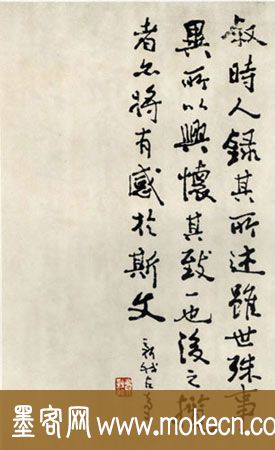 叙時人錄其所述雖世殊事
異所以興懷其致一也後之
者亦將有感於斯文
墨客网 www.mokecn.com